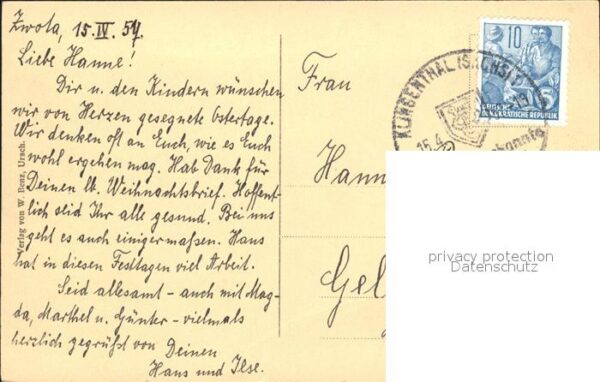 Zwota, 15. IV. 57.
Liebe Hanne!
Dir u. den Kindern wünschen
wir von Herzen gesegnete Ostertage.
Wir denken oft an Euch, wie es Euch
wohl ergehen mag. Hab Dank für
Deinen lb. Weihnachtsbrief. Hoffent-
lich seid Ihr alle gesund. Bei uns
geht es auch einigermaßen. Hans
hat in diesen Festtagen viel Arbeit.
Seid allesamt - auch mit Mag-
da, Marthel u. Günter - vielmals
herzlich gegrüßt von Deinen
Hans und Ilse.
Verlag von W. Benz, Urach.
Frau
Hann
Gel
10
DEMOKRATISCHE REPUBLIK
KLINGENTHAL (SACHS)
15.4.
privacy protection
Datenschutz